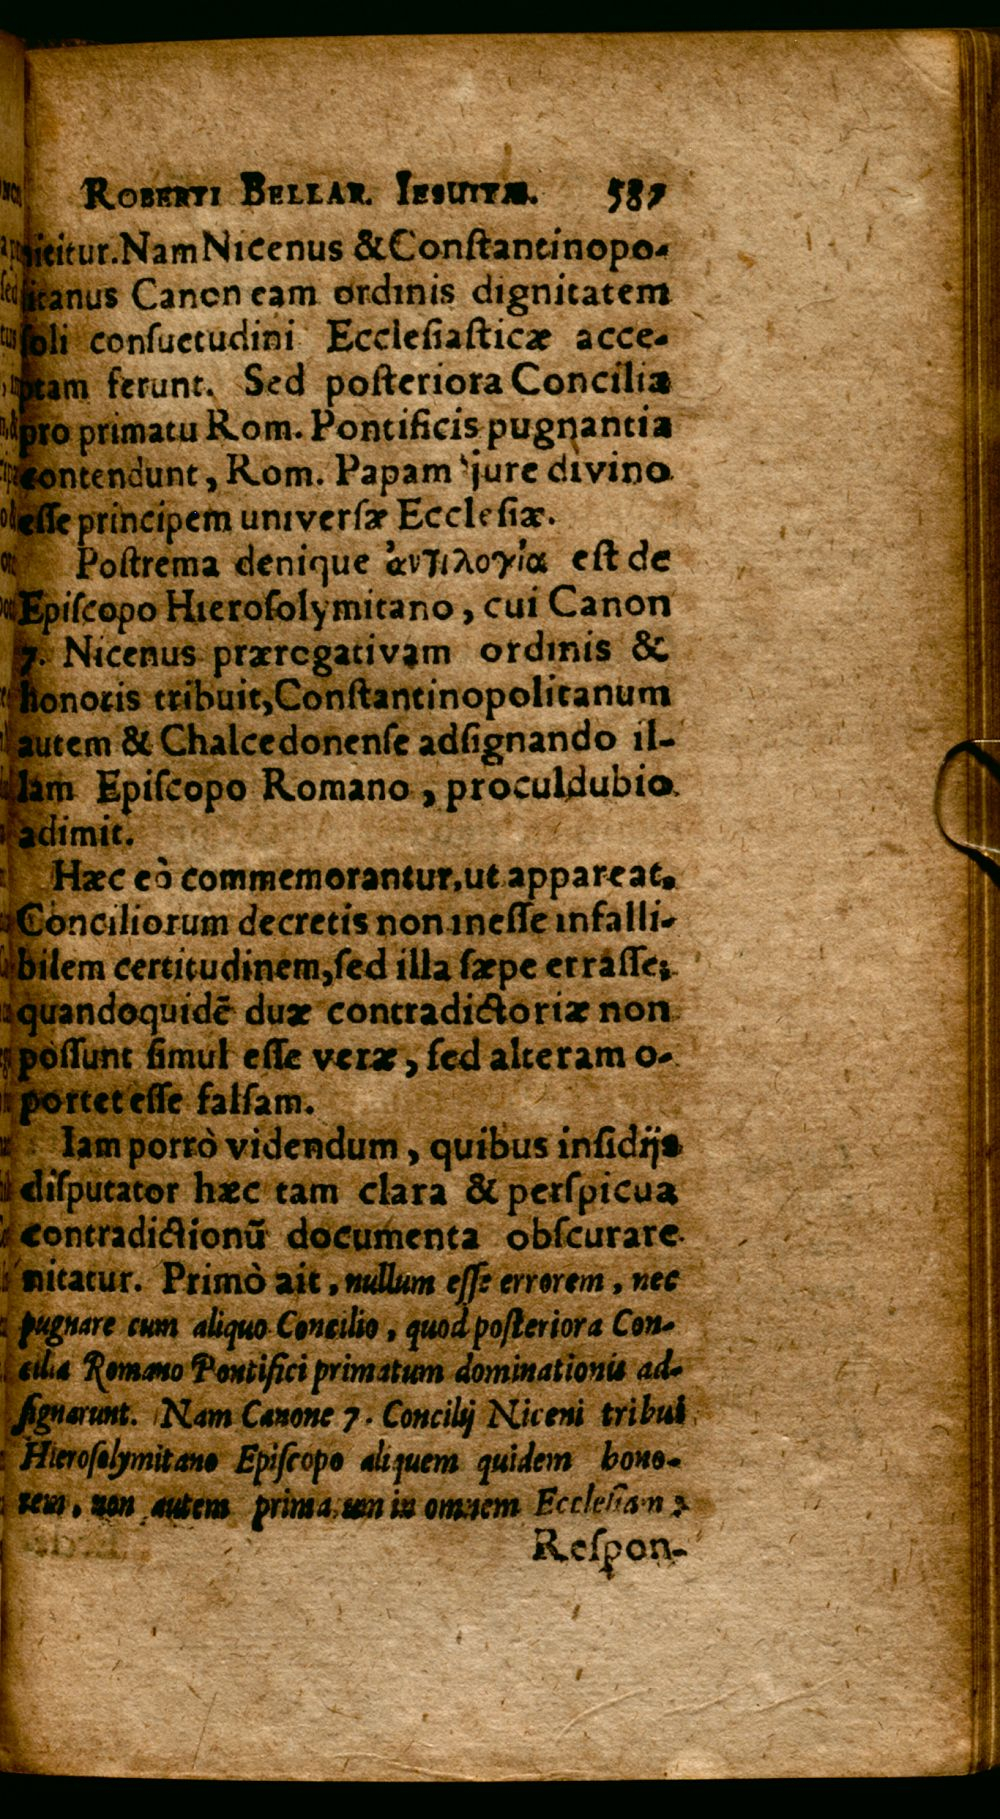 ROBERTI BELLAR. IESUITÆ. 587
nicitur. Nam Nicenus & Conſtantinopo-
litanus Canon eam ordinis dignitatem
ſoli conſuetudini Eccleſiaſticæ acce-
ptam ferunt. Sed poſteriora Concilia
pro primatu Rom. Pontificis pugnantia
contendunt, Rom. Papam jure divino
eſſe principem univerſæ Eccleſiæ.
Poſtrema denique ἀντιλογία eſt de
Epiſcopo Hieroſolymitano, cui Canon
7. Nicenus prærogativam ordinis &
honoris tribuit, Conſtantinopolitanum
autem & Chalcedonenſe adſignando il-
lam Epiſcopo Romano, proculdubio
adimit.
Hæc eò commemorantur, ut appareat,
Conciliorum decretis non ineſſe infalli-
bilem certitudinem, ſed illa ſæpe erraſſe;
quandoquidē duæ contradictoriæ non
poſſunt ſimul eſſe veræ, ſed alteram o-
portet eſſe falſam.
Iam porrò videndum, quibus inſidijs
diſputator hæc tam clara & perſpicua
contradictionū documenta obſcurare
nitatur. Primò ait, nullum eſſe errorem, nec
pugnare cum aliquo Concilio, quod poſteriora Con-
cilia Romano Pontifici primatum dominationis ad-
ſignarunt. Nam Canone 7. Concilij Niceni tribui
Hieroſolymitano Epiſcopo aliquem quidem hono-
rem, non autem primatum in omnem Eccleſiam;
Reſpon-